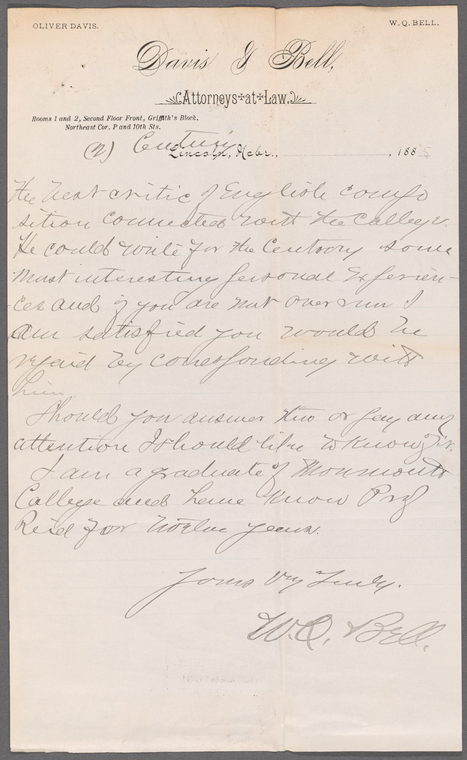 OLIVER DAVIS. W. Q. BELL.
Davis & Bell,
Attorneys at Law.
Rooms 1 and 2, Second Floor Front, Griffith's Block,
Northeast Cor. P and 10th Sts.
(2) Century
Lincoln, Nebr., 188
the best critic of English compo
sition connected with the College.
He could write for the Century some
most interesting personal experien-
ces and if you are not over run I
am satisfied you would be
repaid by corresponding with
him.
Should you answer this or pay any
attention I should like to know
I am a graduate of Monmouth
College and have know Prof
Reid for twelve years.
Yours Very Truly.
W. Q. Bell.